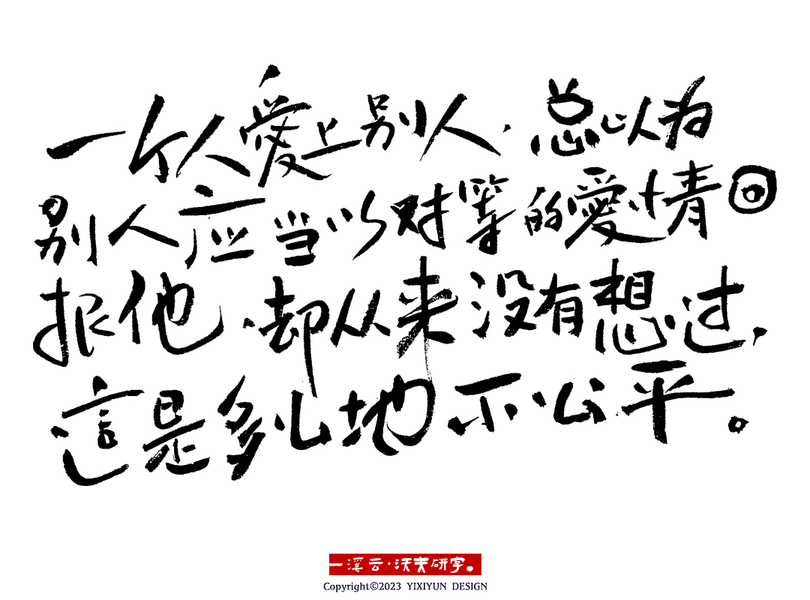 一个人愛上别人，总以为
别人应当以对等的愛情回
报他，却从来没有想过，
這是多么地不公平。
一溪云·沃夫研字。
Copyright©2023 YIXIYUN DESIGN